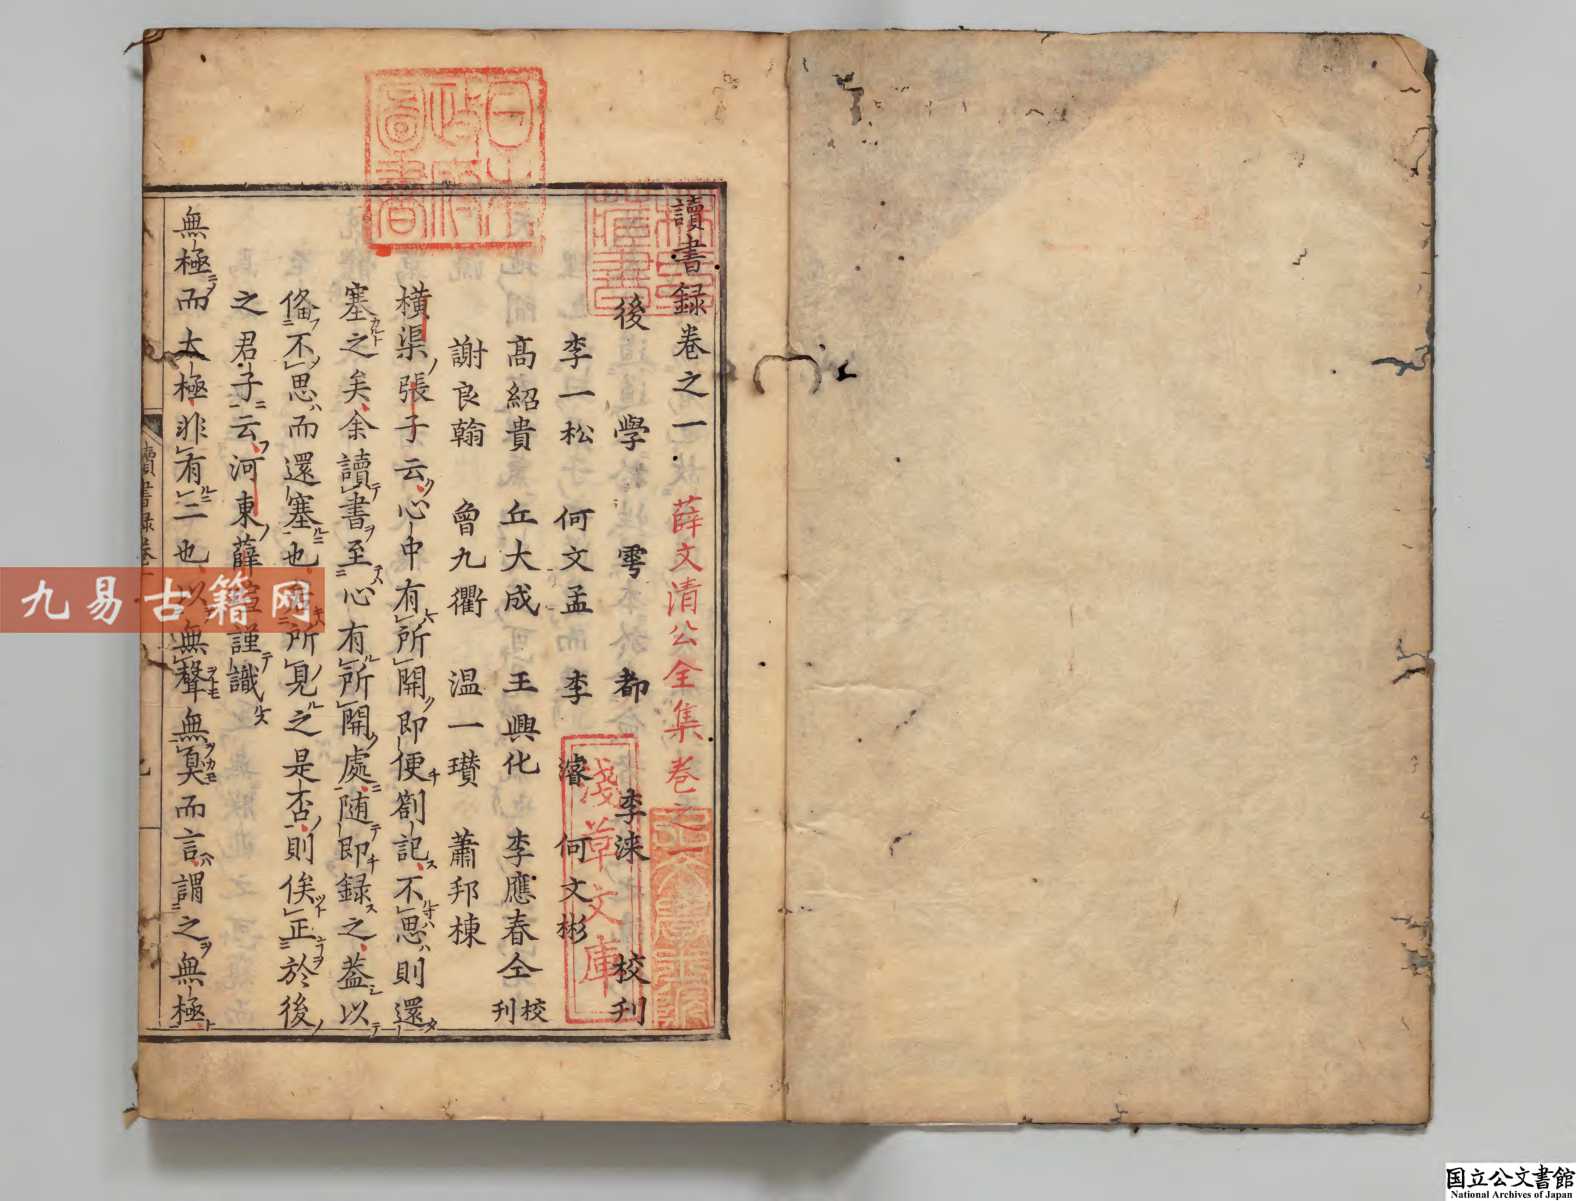 讀書錄卷之一 薛文清公全集卷之一
後學雩都 李淶 校刊
李一松 何文孟 李濬 何文彬
高紹貴 丘大成 王興化 李應春 仝校刊
謝良翰 曾九衢 温一瓚 蕭邦棟
橫渠張子云心中有所開即便劄記不思則還
塞之矣余讀書至心有所開處随即録之葢以
俻不思而還塞也所見之是否則俟正於後
之君子云河東薛瑄謹識
無極而太極非有二也以無聲無臭而言謂之無極
日本政府圖書
淺草文庫
讀書録卷一
九易古籍网
国立公文書館
National Archives of Japan